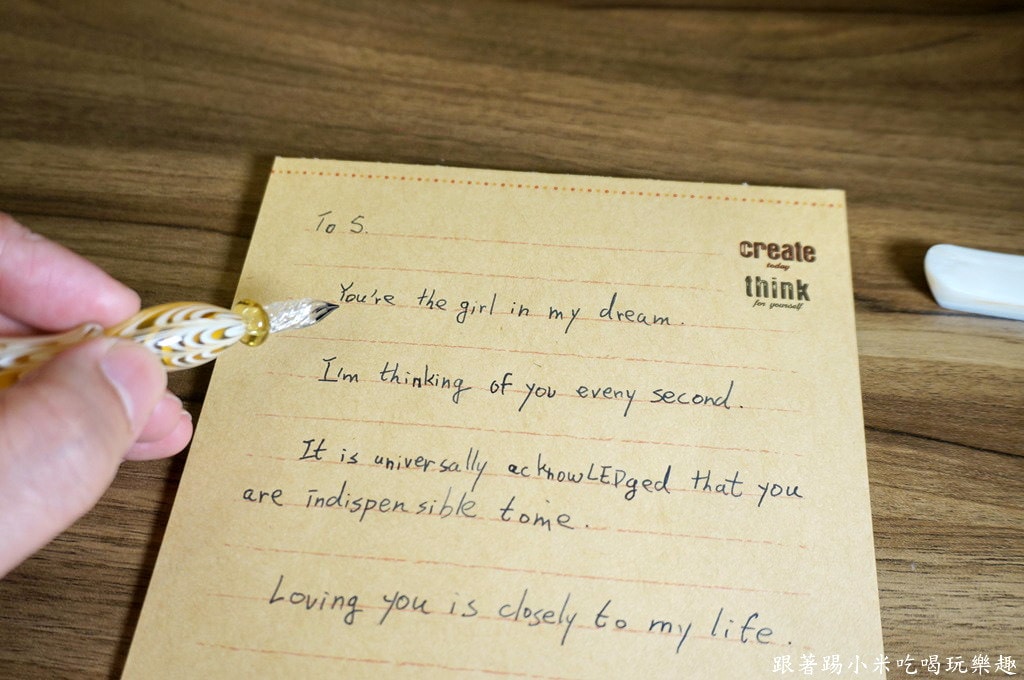 To S.
create
today
think
for yourself
You're the girl in my dream.
I'm thinking of you every second.
It is universally acknowLEDged that you
are indispensible to me.
Loving you is closely to my life.
跟著踢小米吃喝玩樂趣